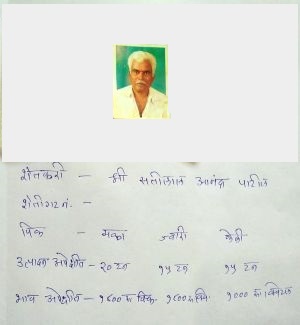 शेतकरी - श्री सतीलाल आनंदा पाटील
शेतीगट नं. -
पिक - मका ज्वारी केळी
उत्पादन अपेक्षीत - २० टन १५ टन १५ टन
भाव अपेक्षीत - १८०० रू क्विं. १८०० रू क्वि. १००० रू क्विंटल